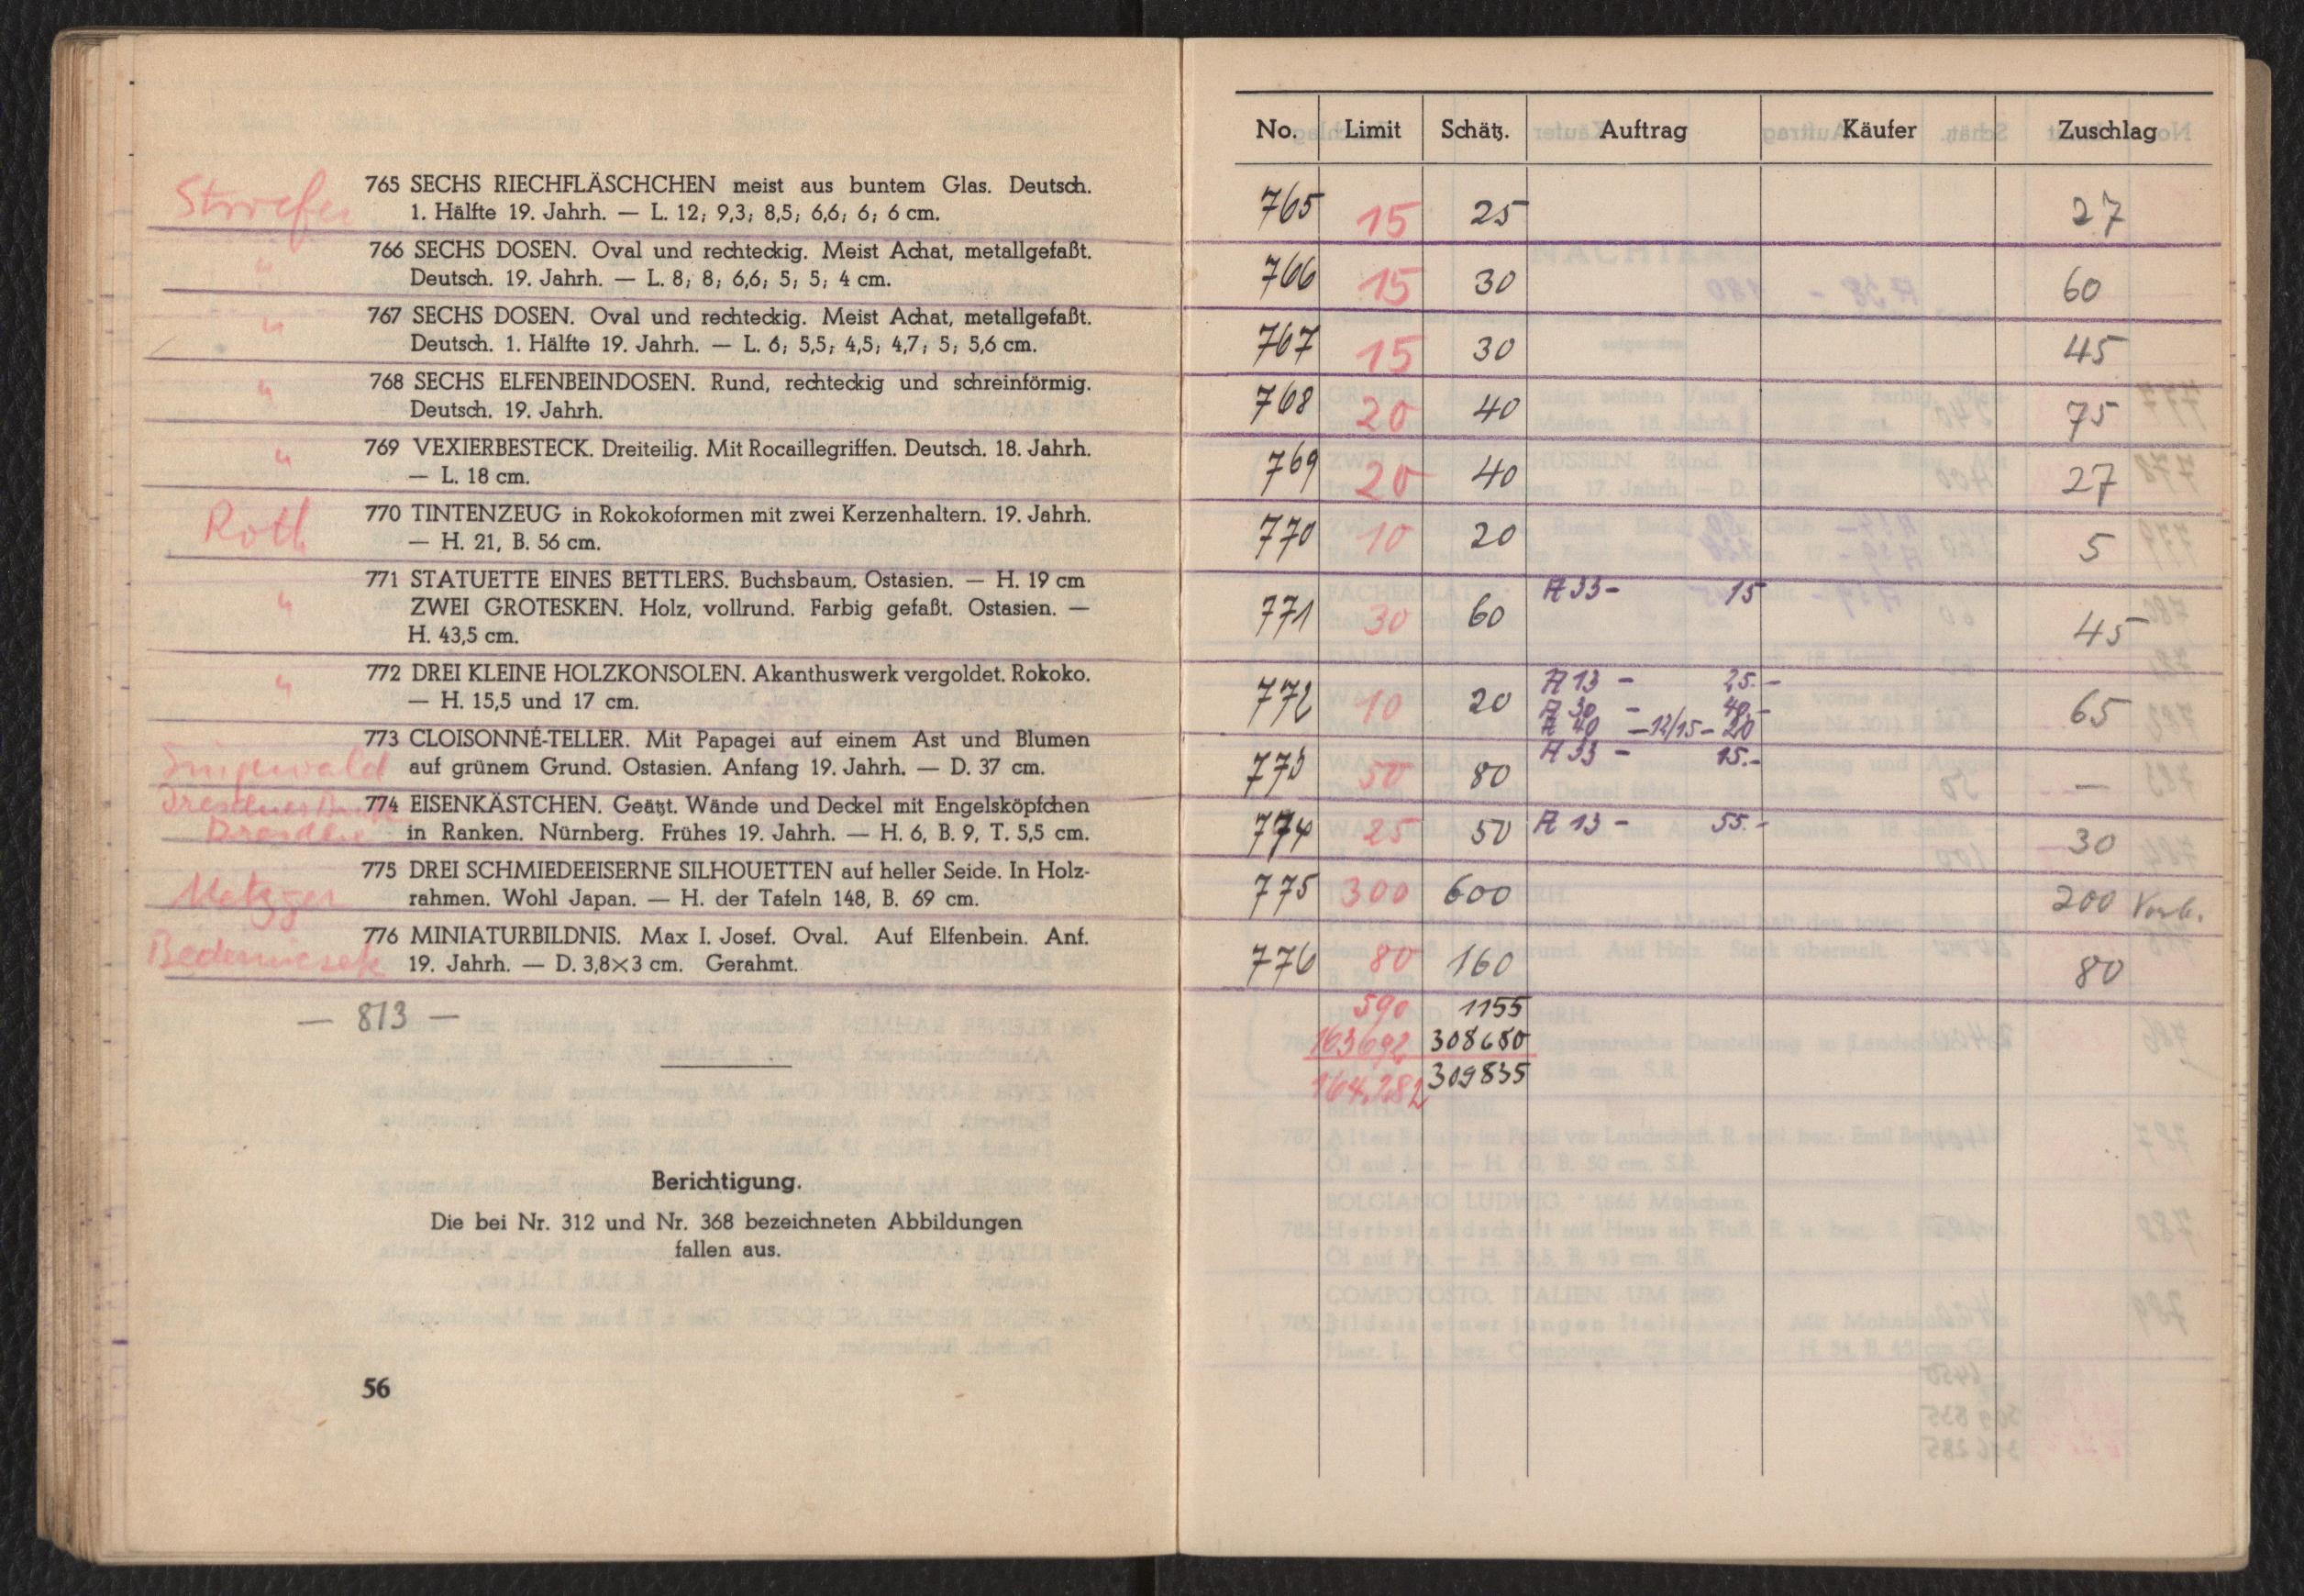 765 SECHS RIECHFLÄSCHCHEN meist aus buntem Glas. Deutsch.
1. Hälfte 19. Jahrh. — L. 12; 9,3; 8,5; 6,6; 6; 6 cm.
"
766 SECHS DOSEN. Oval und rechteckig. Meist Achat, metallgefaßt.
Deutsch. 19. Jahrh. — L. 8; 8; 6,6; 5; 5; 4 cm.
"
767 SECHS DOSEN. Oval und rechteckig. Meist Achat, metallgefaßt.
Deutsch. 1. Hälfte 19. Jahrh. — L. 6; 5,5; 4,5; 4,7; 5; 5,6 cm.
"
768 SECHS ELFENBEINDOSEN. Rund, rechteckig und schreinförmig.
Deutsch. 19. Jahrh.
"
769 VEXIERBESTECK. Dreiteilig. Mit Rocaillegriffen. Deutsch. 18. Jahrh.
— L. 18 cm.
Roth
770 TINTENZEUG in Rokokoformen mit zwei Kerzenhaltern. 19. Jahrh.
— H. 21, B. 56 cm.
"
771 STATUETTE EINES BETTLERS. Buchsbaum. Ostasien. — H. 19 cm
ZWEI GROTESKEN. Holz, vollrund. Farbig gefaßt. Ostasien. —
H. 43,5 cm.
"
772 DREI KLEINE HOLZKONSOLEN. Akanthuswerk vergoldet. Rokoko.
— H. 15,5 und 17 cm.
773 CLOISONNÉ-TELLER. Mit Papagei auf einem Ast und Blumen
auf grünem Grund. Ostasien. Anfang 19. Jahrh. — D. 37 cm.
Dresdner Bank
Dresden
774 EISENKÄSTCHEN. Geätzt. Wände und Deckel mit Engelsköpfchen
in Ranken. Nürnberg. Frühes 19. Jahrh. — H. 6, B. 9, T. 5,5 cm.
Metzger
775 DREI SCHMIEDEEISERNE SILHOUETTEN auf heller Seide. In Holz-
rahmen. Wohl Japan. — H. der Tafeln 148, B. 69 cm.
776 MINIATURBILDNIS. Max I. Josef. Oval. Auf Elfenbein. Anf.
19. Jahrh. — D. 3,8×3 cm. Gerahmt.
— 813 —
Berichtigung.
Die bei Nr. 312 und Nr. 368 bezeichneten Abbildungen
fallen aus.
56
No. Limit Schätz. Auftrag Käufer Zuschlag
765 15 25 27
766 15 30 60
767 15 30 45
768 20 40 75
769 20 40 27
770 10 20 5
771 30 60 A 33 - 15 45
772 10 20 A 13 - 25.- 65
A 30 - 40.-
A 40 - 12/15 - 20
773 50 80 A 33 - 15.- —
774 25 50 A 13 - 55.- 30
775 300 600 200 Vorb.
776 80 160 80
590 1155
163692 308680
164.282 309835